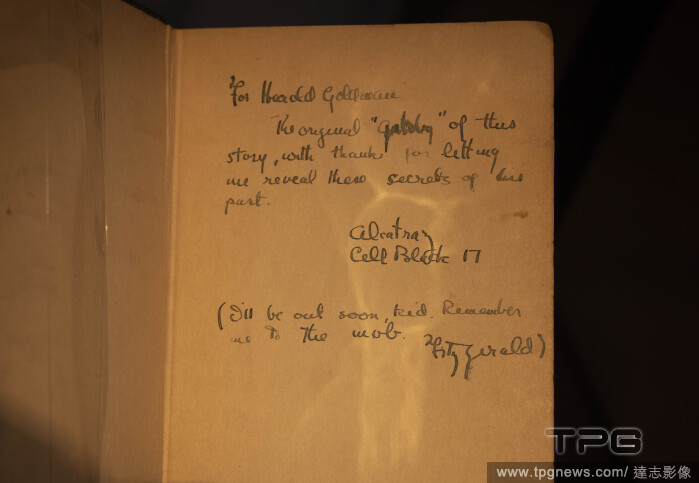 For Harold Goldman
The original "Gatsby" of this
story, with thanks for letting
me reveal these secrets of his
past.
Alcatraz
Cell Block 17
(I'll be out soon, kid. Remember
me to the mob. Fitzgerald)
TPG
www.tpgnews.com/ 達志影像